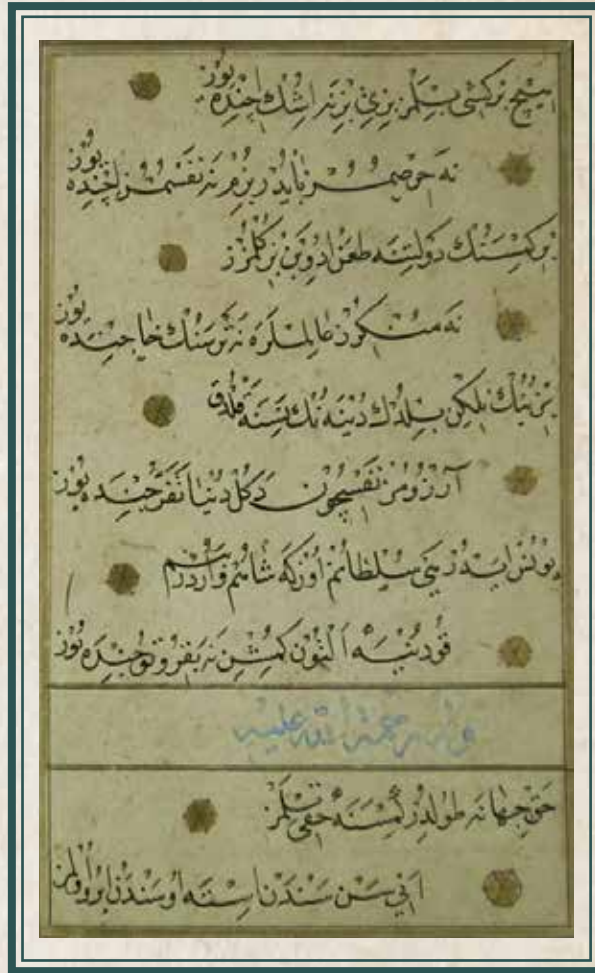 هیچ بر کشی بیلمز بزی بز نه اشك اچنده یوز
نه حرصمز بایدر بزم نه نفسمز اچنده یوز
بر کمسنك دولتنه طعن ادوبن بز کلمزز
نه منکرز عالملره نه ترسنك خاچنده یوز
بز نیك بلکن بیلدك دنیه نك نسنه قلدق
آرزومز نفسچون دکل دنیا تفرجنده یوز
یونس ایدر یتی سلطانم اوزکه شانم واردرم
قو دنیه التون کمشن نه بقر و توجنده یوز
وله رحمة الله علیه
حق جهانه طولدر کمسنه حقی بیلمز
انی سن سندن استه او سندن ایرو اولمز